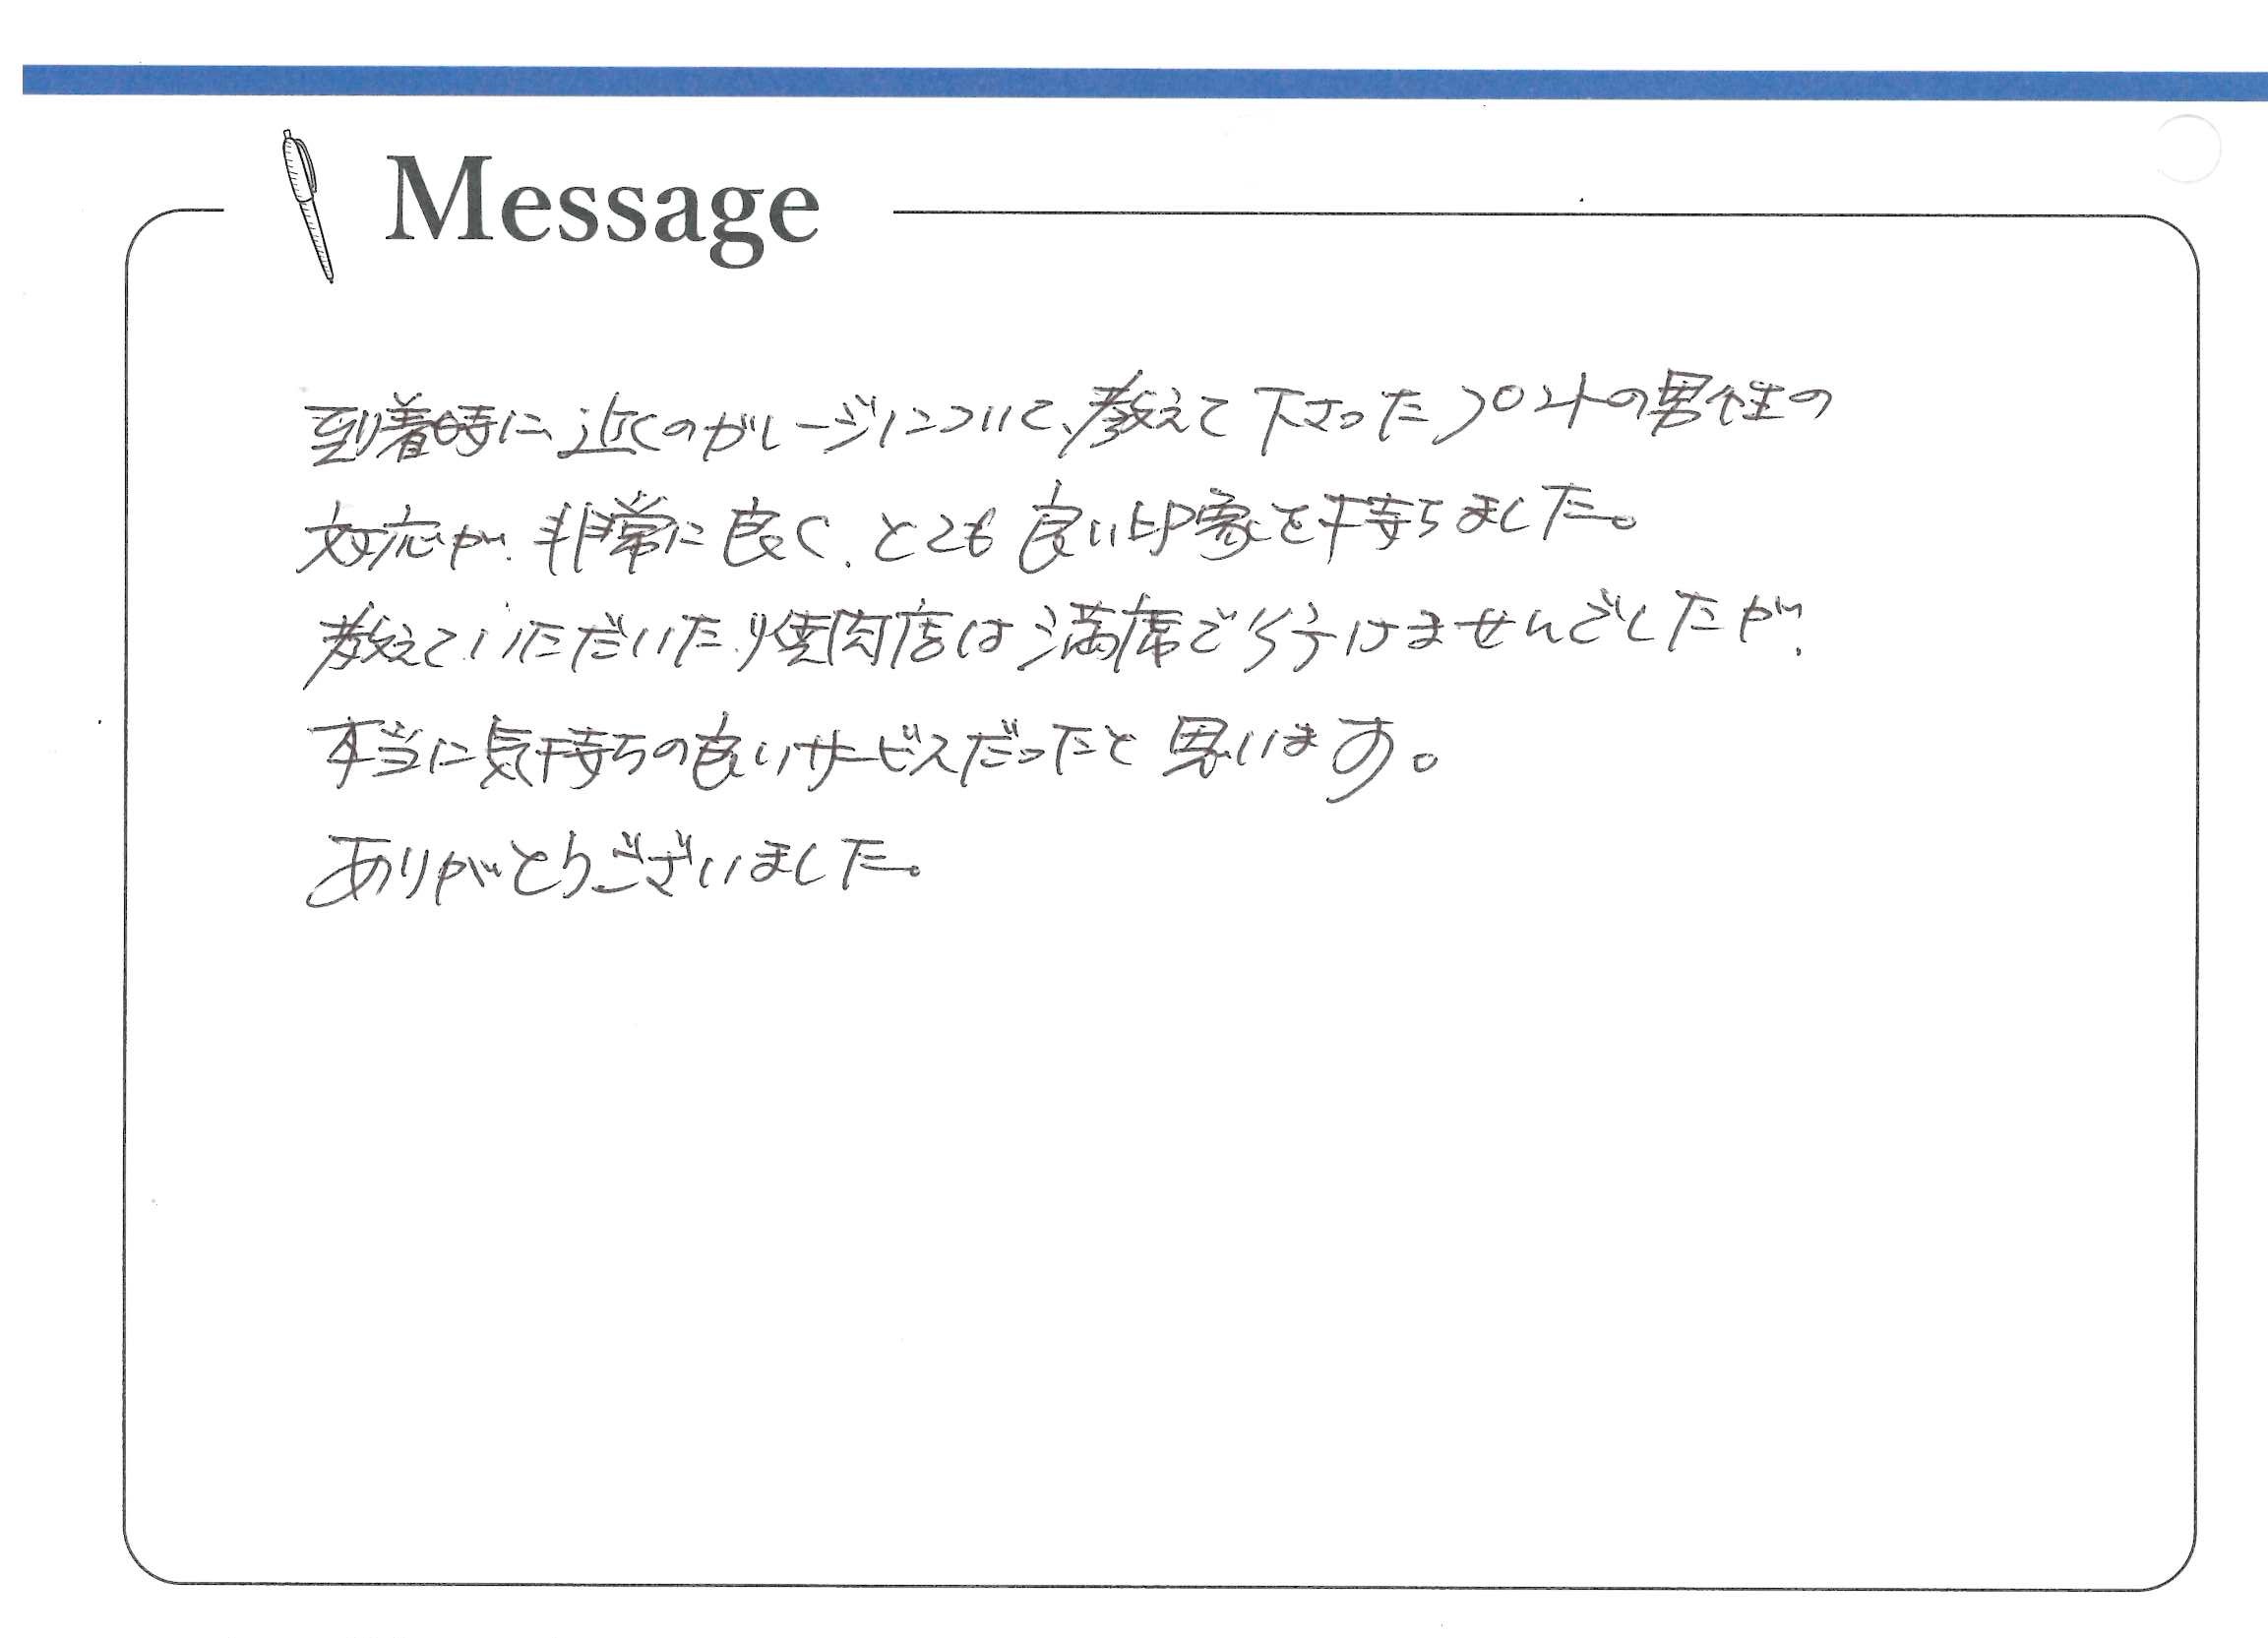 Message
到着時に、近くのガレージについて、教えて下さったフロントの男性の
対応が、非常に良く、とても良い印象を持ちました。
教えていただいた焼肉店は満席で行けませんでしたが、
本当に気持ちの良いサービスだったと思います。
ありがとうございました。